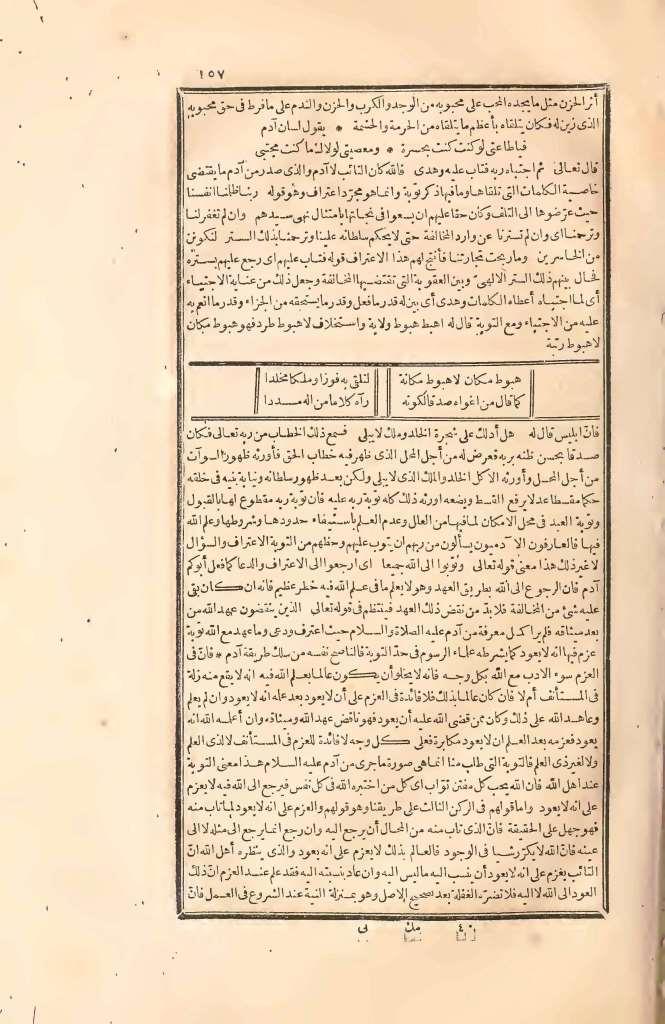 ١٥٧
أثر الحزن مثل ما يجده المحب على محبوبه من الوجد والكرب والحزن والندم على ما فرط فى حق محبوبه
الذى زين له فكان يتلقاه بأعظم ما يتلقاه من الحرمة والحشمة * يقول لسان آدم
فيا طاعتى لو كنت كنت بحسرة * ومعصيتى لولاك ما كنت مجتبى
قال تعالى ثم اجتباه ربه فتاب عليه وهدى فالله كان التائب لا آدم والذى صدر من آدم ما يقتضى
خاصية الكلمات التى تلقاها وما فيها ذكر توبة وانما هو مجرّد اعتراف وهو قوله ربنا ظلمنا انفسنا
حيث عرّضوها الى التلف وكان حقا عليهم ان يسعوا فى نجاتها بامتثال نهى سيدهم وان لم تغفر لنا
وترحمنا اى وان لم تسترنا عن وارد المخالفة حتى لا يحكم سلطانه علينا وترحمنا بذلك الستر لنكونن
من الخاسرين وما ربحت تجارتنا فأنتج لهم هذا الاعتراف قوله فتاب عليهم اى رجع عليهم بستره
فحال بينهم ذلك الستر الالهىّ وبين العقوبة التى تقتضيها المخالفة وجعل ذلك من عناية الاجتباء
أى لما اجتباه أعطاه الكلمات وهدى أى بين له قدر ما فعل وقدر ما يستحقه من الجزاء وقدر ما انعم به
عليه من الاجتباء ومع التوبة قال له اهبط هبوط ولاية واستخلاف لا هبوط طرد فهو هبوط مكان
لا هبوط رتبة
هبوط مكان لا هبوط مكانة لتلقى به فوزا وملكا مخلدا
كما قال من اغواه صدقا لكونه رآه كلاما من اله مسددا
فانّ ابليس قال له هل أدلك على شجرة الخلد وملك لا يبلى فسمع ذلك الخطاب من ربه تعالى فكان
صدقا بحسن ظنه بربه فعرض له من أجل المحل الذى ظهر فيه خطاب الحق فأورثه ظهور السوآت
من أجل المحل وأورثه الاكل الخلد والملك الذى لا يبلى ولكن بعد ظهور سلطانه ونيابة بنيه فى خلقه
حكما مقسطا عدلا يرفع القسط ويضعه اورثه ذلك كله توبة ربه عليه فان توبة ربه مقطوع لها بالقبول
وتوبة العبد فى محل الامكان لما فيها من العلل وعدم العلم باستيفاء حدودها وشروطها وعلم الله
فيها فالعارفون الآدميون يسألون من ربهم ان يتوب عليهم وحظهم من التوبة الاعتراف والسؤال
لا غير ذلك هذا معنى قوله تعالى وتوبوا الى الله جميعا اى ارجعوا الى الاعتراف والدعا كما فعل أبوكم
آدم فان الرجوع الى الله بطريق العهد وهو لا يعلم ما فى علم الله فيه خطر عظيم فانه ان كان بقى
عليه شئ من المخالفة فلا بدّ من نقض ذلك العهد فينتظم فى قوله تعالى الذين ينقضون عهد الله من
بعد ميثاقه فلم ير أكمل معرفة من آدم عليه الصلاة والسلام حيث اعترف ودعى وما عهد مع الله توبة
عزم فيها انه لا يعود كما يشترطه علماء الرسوم فى حدّ التوبة فالناصح نفسه من سلك طريقة آدم * فانّ فى
العزم سوء الادب مع الله بكل وجه فانه لا يخلو أن يكون عالما بعلم الله فيه انه لا يقع منه زلة
فى المستأنف أم لا فان كان عالما بذلك فلا فائدة فى العزم على أن لا يعود بعد علمه انه لا يعود وان لم يعلم
وعاهد الله على ذلك وكان ممن قضى الله عليه أن يعود فهو ناقض عهد الله وميثاقه وان أعلمه الله انه
يعود فعزمه بعد العلم ان لا يعود مكابرة فعلى كل وجه لا فائدة للعزم فى المستأنف لا لذى العلم
ولا لغير ذى العلم فالتوبة التى طلب منا انما هى صورة ما جرى من آدم عليه السلام هذا معنى التوبة
عند اهل الله فان الله يحب كل مفتن توّاب اى كل من اختبره الله فى كل نفس فيرجع الى الله فيه لا يعزم
على انه لا يعود واما قولهم فى الركن الثالث على طريقنا وهو قولهم والعزم على انه لا يعود لما تاب منه
فهو جهل على الحقيقة فانّ الذى تاب منه من المحال أن يرجع اليه وان رجع انما يرجع الى مثله لا الى
عينه فانّ الله لا يكرّر شيأ فى الوجود فالعالم بذلك لا يعزم على انه يعود والذى ينظره أهل الله انّ
التائب يعزم على انه لا يعود أن ينسب اليه ما ليس اليه وان عاد بنسبته اليه فقد علم عند العزم انّ ذلك
العود الى الله لا اليه فلا تضرّه الغفلة بعد تصحيح الاصل وهو بمنزلة النية عند الشروع فى العمل فانّ